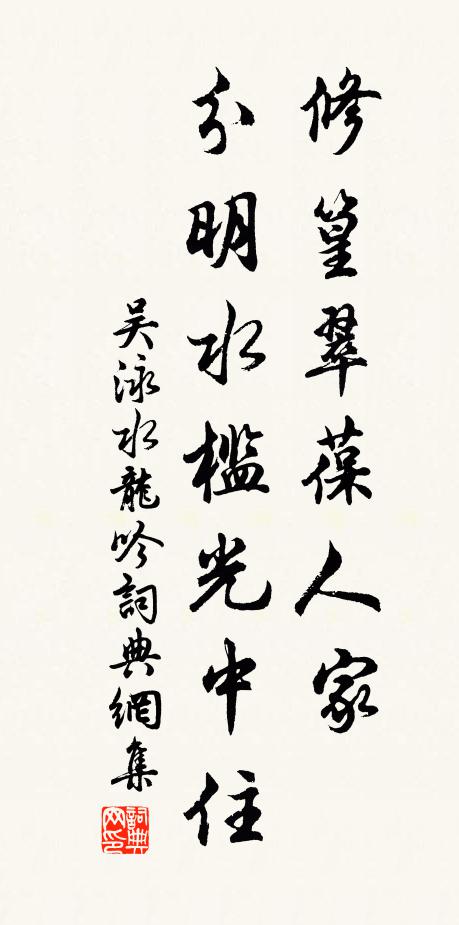 修篁翠葆人家
分明水槛光中住
吴泳水龍吟詞典網集
詞典网印